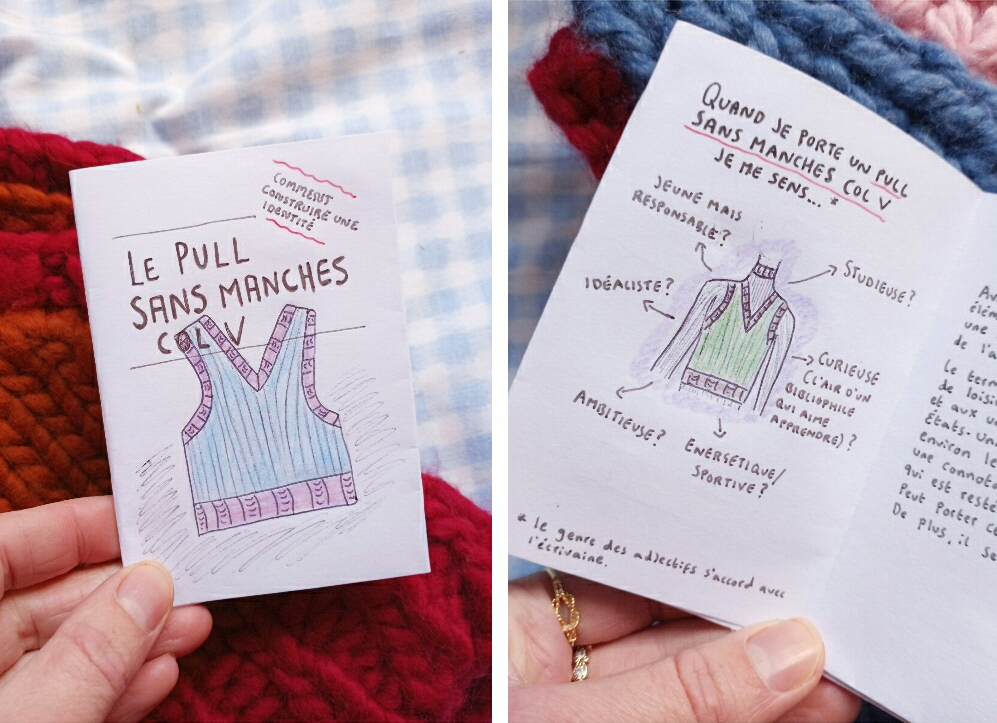 COMMENT
CONSTRUIRE UNE
IDENTITÉ
LE PULL
SANS MANCHES
COL V
QUAND JE PORTE UN PULL
SANS MANCHES COL V
JE ME SENS... *
JEUNE MAIS
RESPONSABLE?
STUDIEUSE?
IDÉALISTE?
CURIEUSE
(L'AIR D'UN
BIBLIOPHILE
QUI AIME
APPRENDRE)?
AMBITIEUSE?
ENERGÉTIQUE/
SPORTIVE?
* le genre des adjectifs s'accord avec
l'écrivaine.
élém
une
de l'a
Le term
de loisi
et aux u
États-Un
environ le
une connot
qui est resté
Peut porter c
De plus, il se